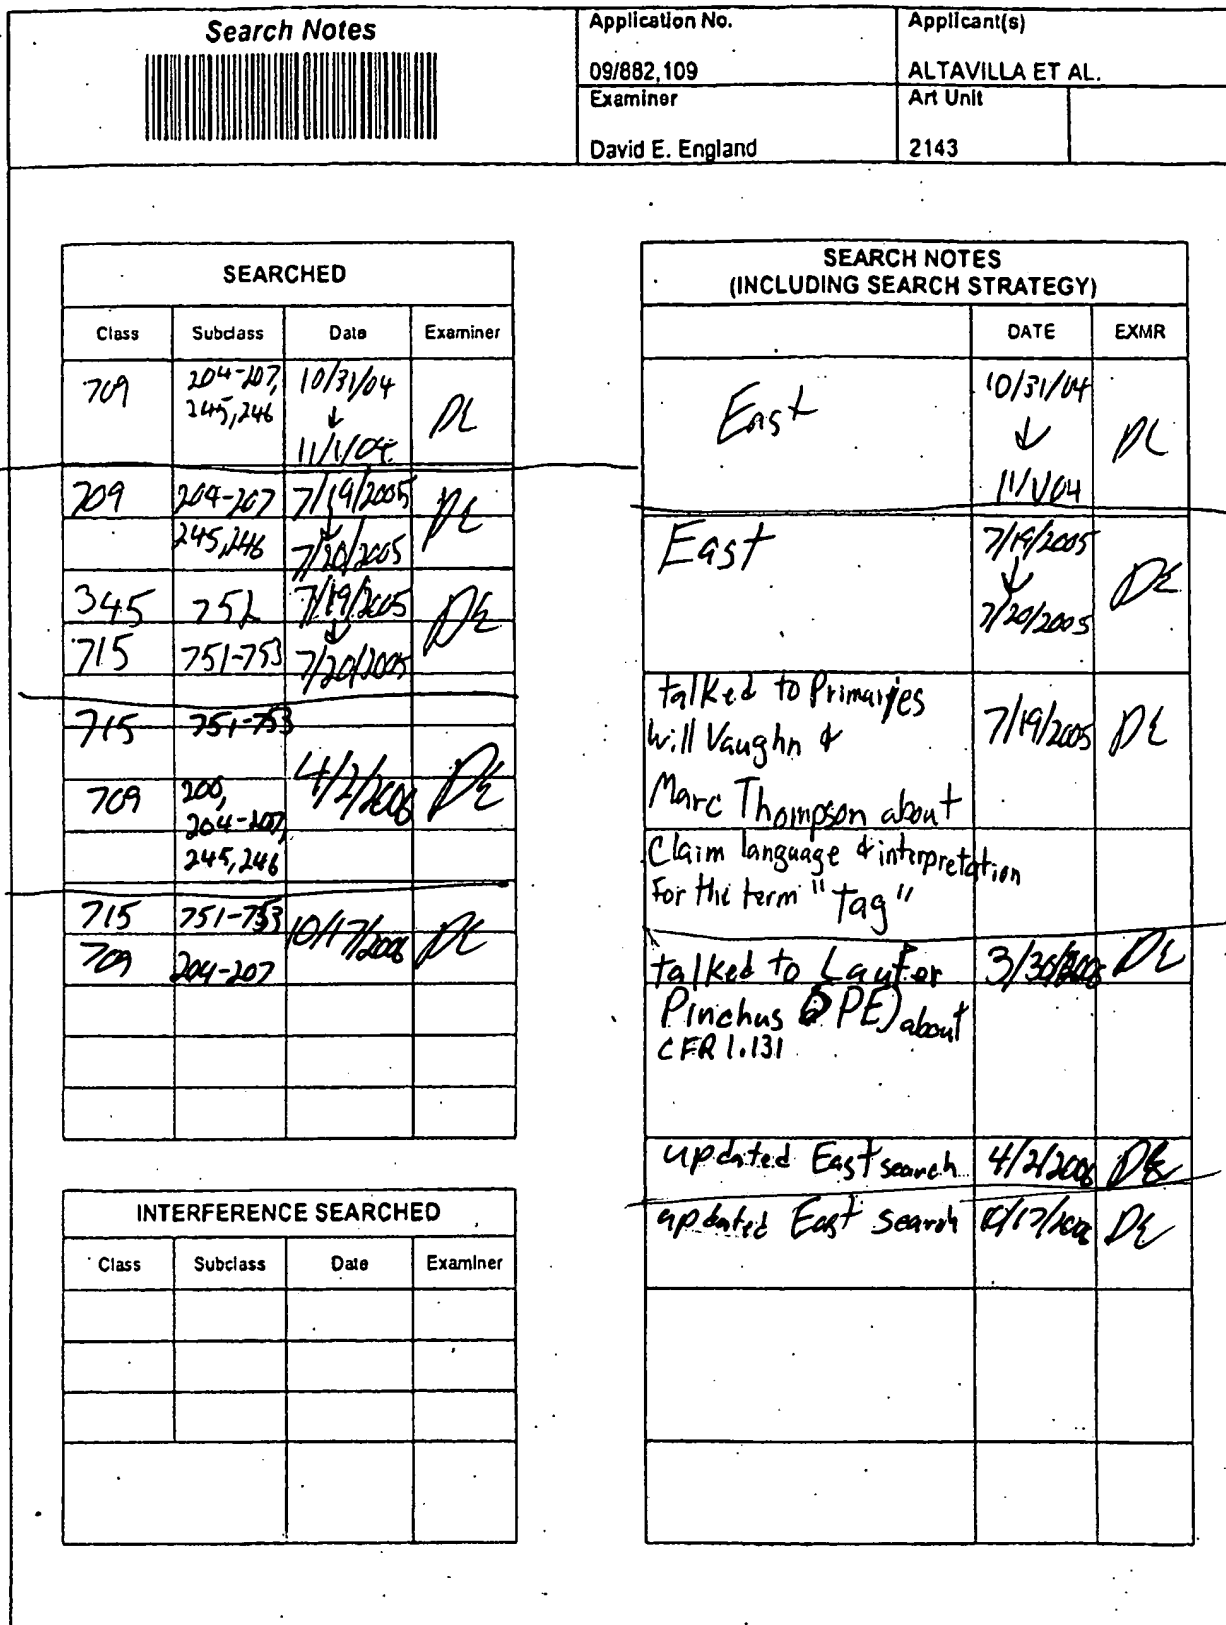 Search Notes
Application No.
Applicant(s)
09/882,109
ALTAVILLA ET AL.
Examiner
Art Unit
David E. England
2143
SEARCHED
Class Subclass Date Examiner
709 204-207, 10/31/04 DE
245,246 ↓
11/1/04
709 204-207 7/19/2005 DE
245,246 ↓
7/20/2005
345 752 7/19/2005 DE
↓
715 751-753 7/20/2005
715 751-753
4/2/2006 DE
709 200,
204-207,
245,246
715 751-753 10/17/2006 DE
709 204-207
INTERFERENCE SEARCHED
Class Subclass Date Examiner
SEARCH NOTES
(INCLUDING SEARCH STRATEGY)
DATE EXMR
East 10/31/04 DE
↓
11/1/04
East 7/19/2005 DE
↓
7/20/2005
talked to Primaries
Will Vaughn & 7/19/2005 DE
Marc Thompson about
Claim language & interpretation
For the term "tag"
talked to Laufer 3/30/2006 DE
Pinchus PE) about
CFR 1.131
updated East search 4/2/2006 DE
updated East search 10/17/2006 DE